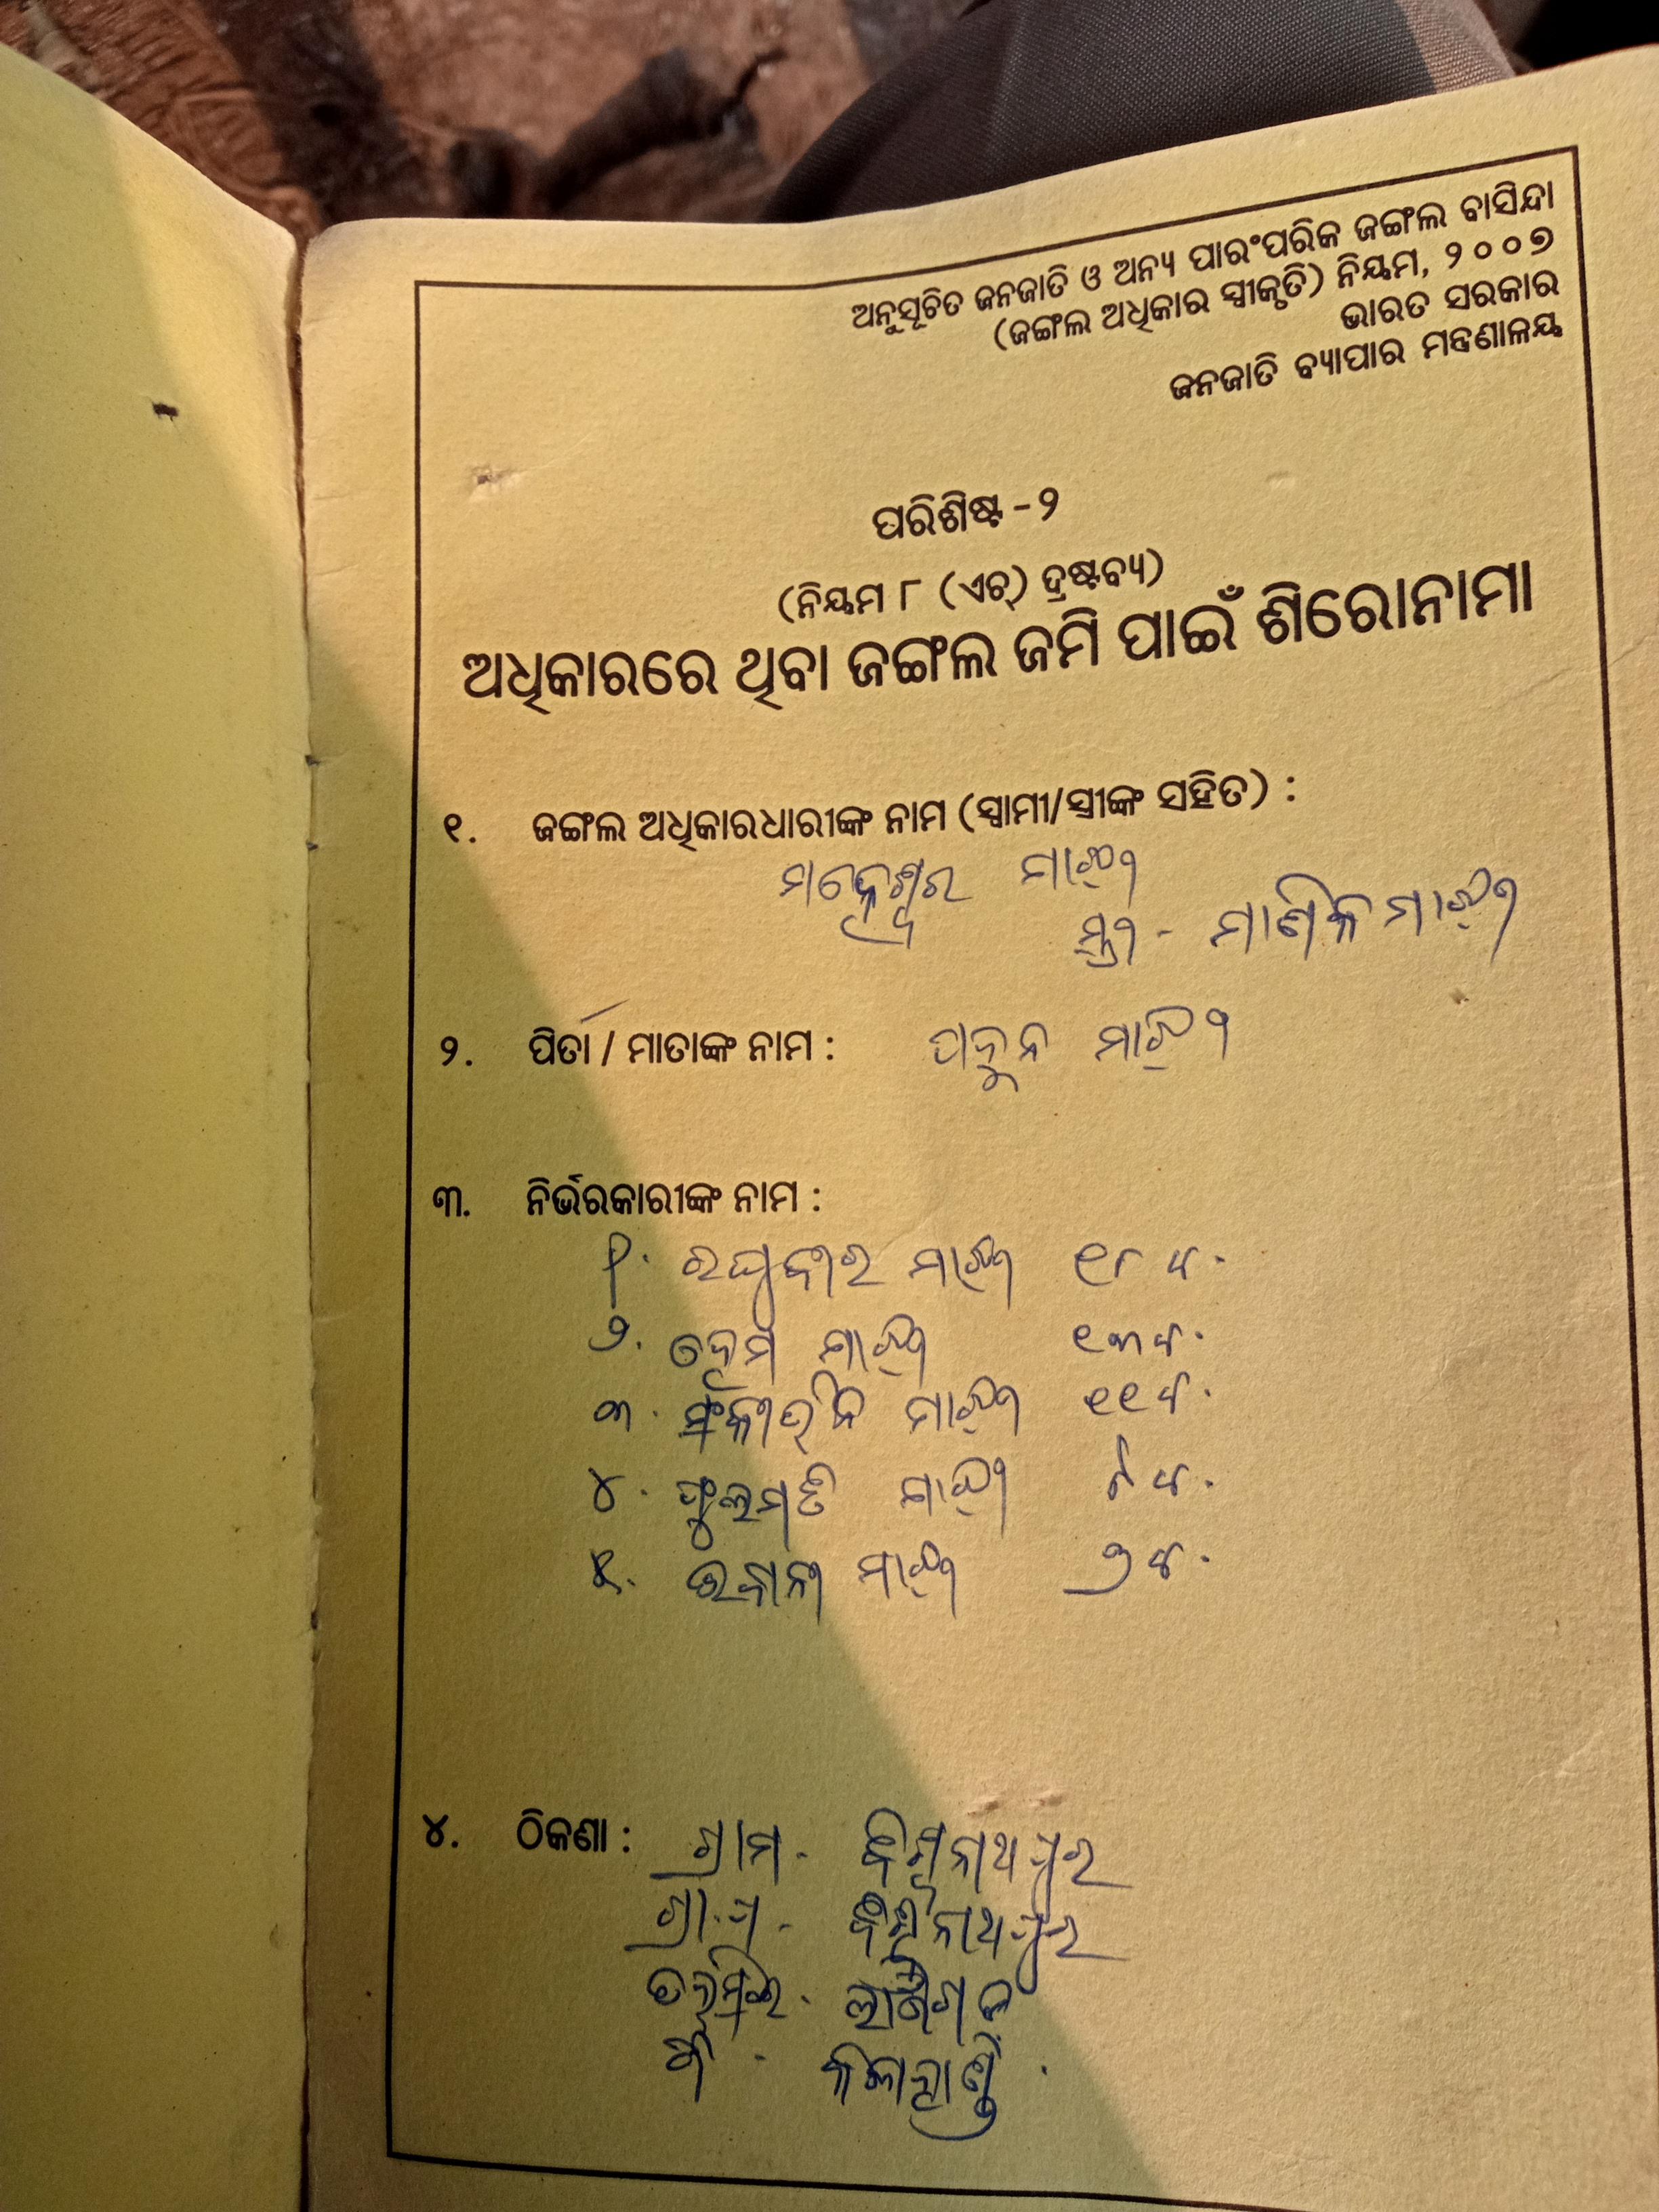 ଅନୁସୂଚିତ ଜନଜାତି ଓ ଅନ୍ୟ ପାରଂପରିକ ଜଙ୍ଗଲ ବାସିନ୍ଦା
(ଜଙ୍ଗଲ ଅଧିକାର ସ୍ୱୀକୃତି) ନିୟମ, ୨୦୦୭
ଭାରତ ସରକାର
ଜନଜାତି ବ୍ୟାପାର ମନ୍ତ୍ରଣାଳୟ
ପରିଶିଷ୍ଟ - ୨
(ନିୟମ ୮ (ଏଚ୍) ଦ୍ରଷ୍ଟବ୍ୟ)
ଅଧିକାରରେ ଥିବା ଜଙ୍ଗଲ ଜମି ପାଇଁ ଶିରୋନାମା
୧. ଜଙ୍ଗଲ ଅଧିକାରଧାରୀଙ୍କ ନାମ (ସ୍ୱାମୀ/ସ୍ତ୍ରୀଙ୍କ ସହିତ) :
ମହେଶ୍ୱର ମାଝୀ
ସ୍ତ୍ରୀ - ମାଣିକ ମାଝୀ
୨. ପିତା / ମାତାଙ୍କ ନାମ : ମାଝୀ
୩. ନିର୍ଭରକାରୀଙ୍କ ନାମ :
୧. ରଘୁବୀର ମାଝୀ ୧୮ ବ.
୨. ହେମ ମାଝୀ ୧୩ ବ.
୩. ମାଝୀ ୧୧ ବ.
୪. ଫୁଲମତି ମାଝୀ ବ.
୫. ଭବାନୀ ମାଝୀ ୬ ବ.
୪. ଠିକଣା : ଗ୍ରାମ - ବିଶ୍ୱନାଥପୁର
ଗ୍ରା.ପ - ବିଶ୍ୱନାଥପୁର
ତହସିଲ - ଲାଞ୍ଜିଗଡ଼
ଜି - କଳାହାଣ୍ଡି